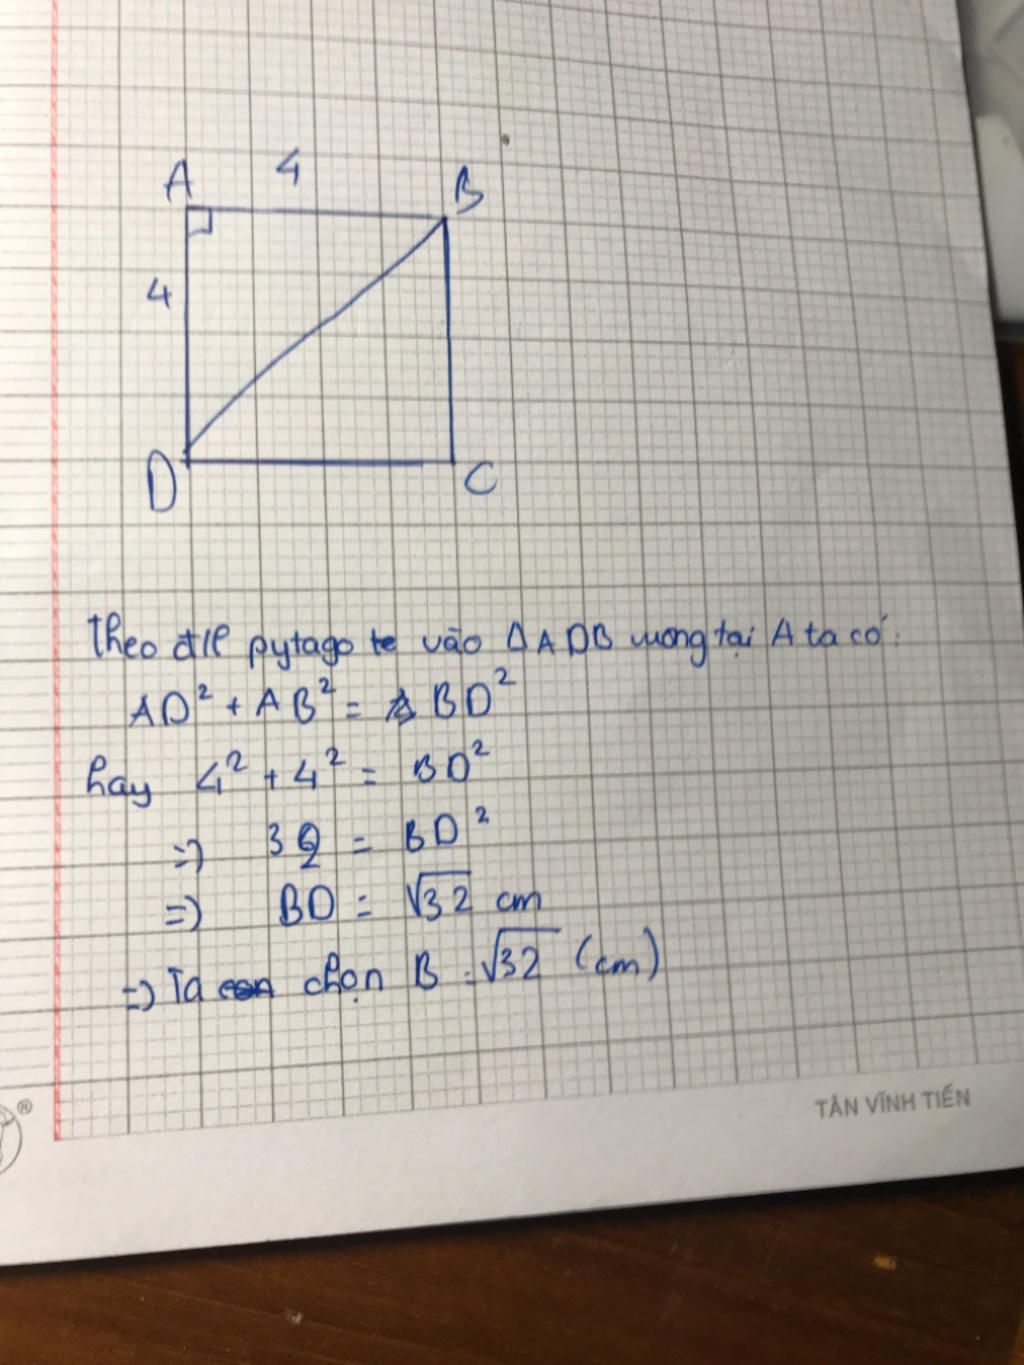 A 4 B
4
D C
theo đ/l pytago vào ΔADB vuông tại A ta có:
AD² + AB² = BD²
hay 4² + 4² = BD²
=) 32 = BD²
=) BD = √32 cm
=) Ta chọn B = √32 (cm)
®
TÂN VĨNH TIẾN